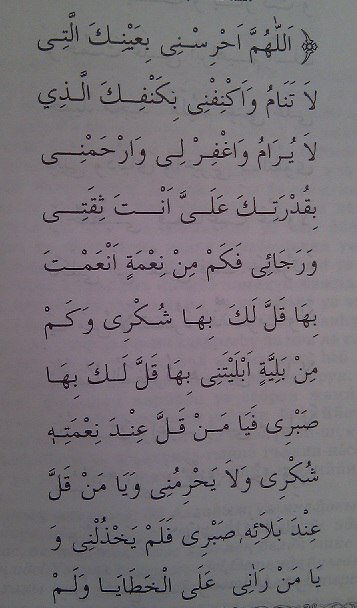 اَللّٰهُمَّ اَحْرِسْنِى بِعَيْنِكَ الَّتِى
لاَ تَنَامُ وَاَكْنِفْنِى بِكَنْفِكَ الَّذِي
لاَ يُرَامُ وَاغْفِرْ لِى وَارْحَمْنِى
بِقُدْرَتِكَ عَلَىَّ اَنْتَ ثِقَتِى
وَرَجَائِى فَكَمْ مِنْ نِعْمَةٍ اَنْعَمْتَ
بِهَا قَلَّ لَكَ بِهَا شُكْرِى وَكَمْ
مِنْ بَلِيَّةٍ اَبْلَيْتَنِى بِهَا قَلَّ لَكَ بِهَا
صَبْرِى فَيَا مَنْ قَلَّ عِنْدَ نِعْمَتِهِ
شُكْرِى وَلاَ يَحْرِمُنِى وَيَا مَنْ قَلَّ
عِنْدَ بَلاَئِهِ صَبْرِى فَلَمْ يَخْذُلْنِى وَ
يَا مَنْ رَاٰنِى عَلَى الْخَطَايَا وَلَمْ